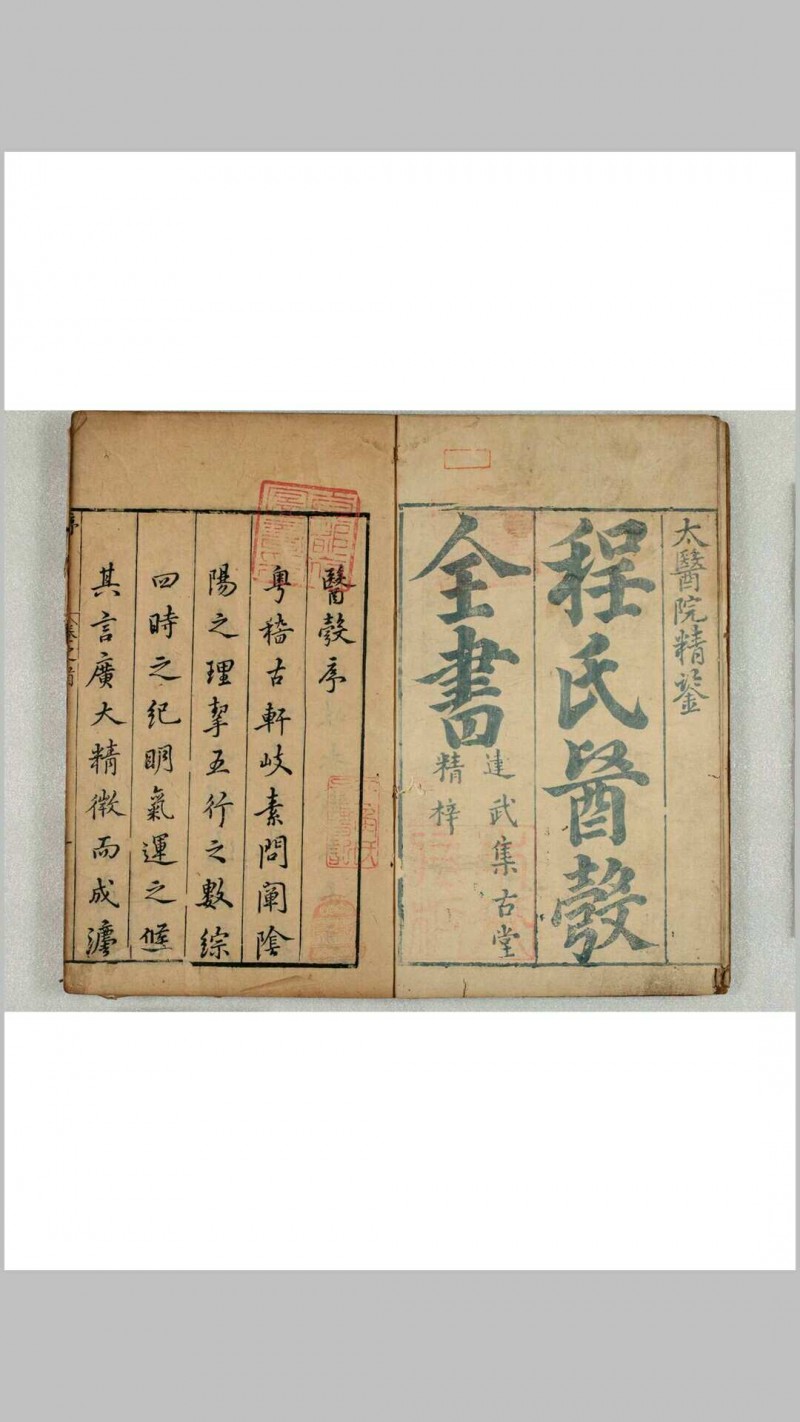 太醫院精鋻
程氏醫彀
全書
建武集古堂
精梓
醫彀序
粤稽古軒岐素問闡陰
陽之理挈五行之數綜
四時之紀明氣運之候
其言廣大精微而成瀍